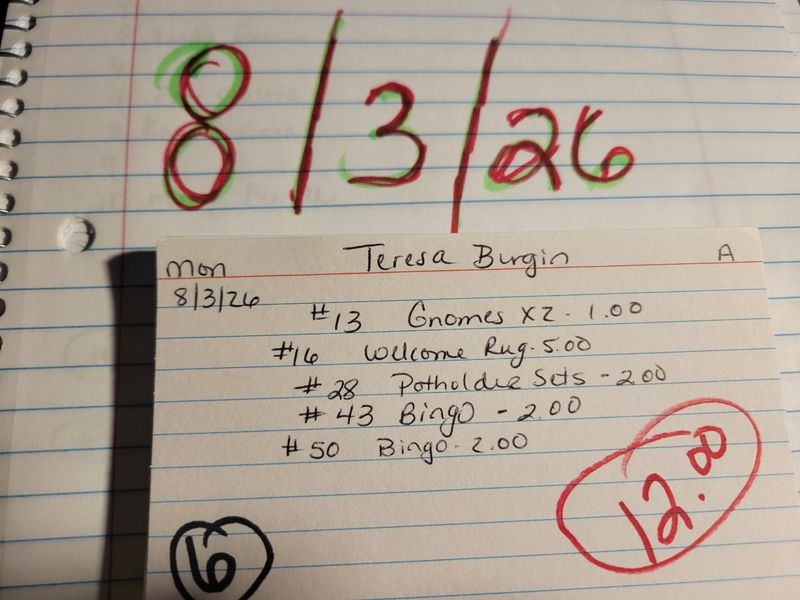 8/3/26
Mon Teresa Burgin A
8/3/26
#13 Gnomes x2 - 1.00
#16 Welcome Rug - 5.00
#28 Potholder Sets - 2.00
#43 Bingo - 2.00
#50 Bingo - 2.00
12.00
6